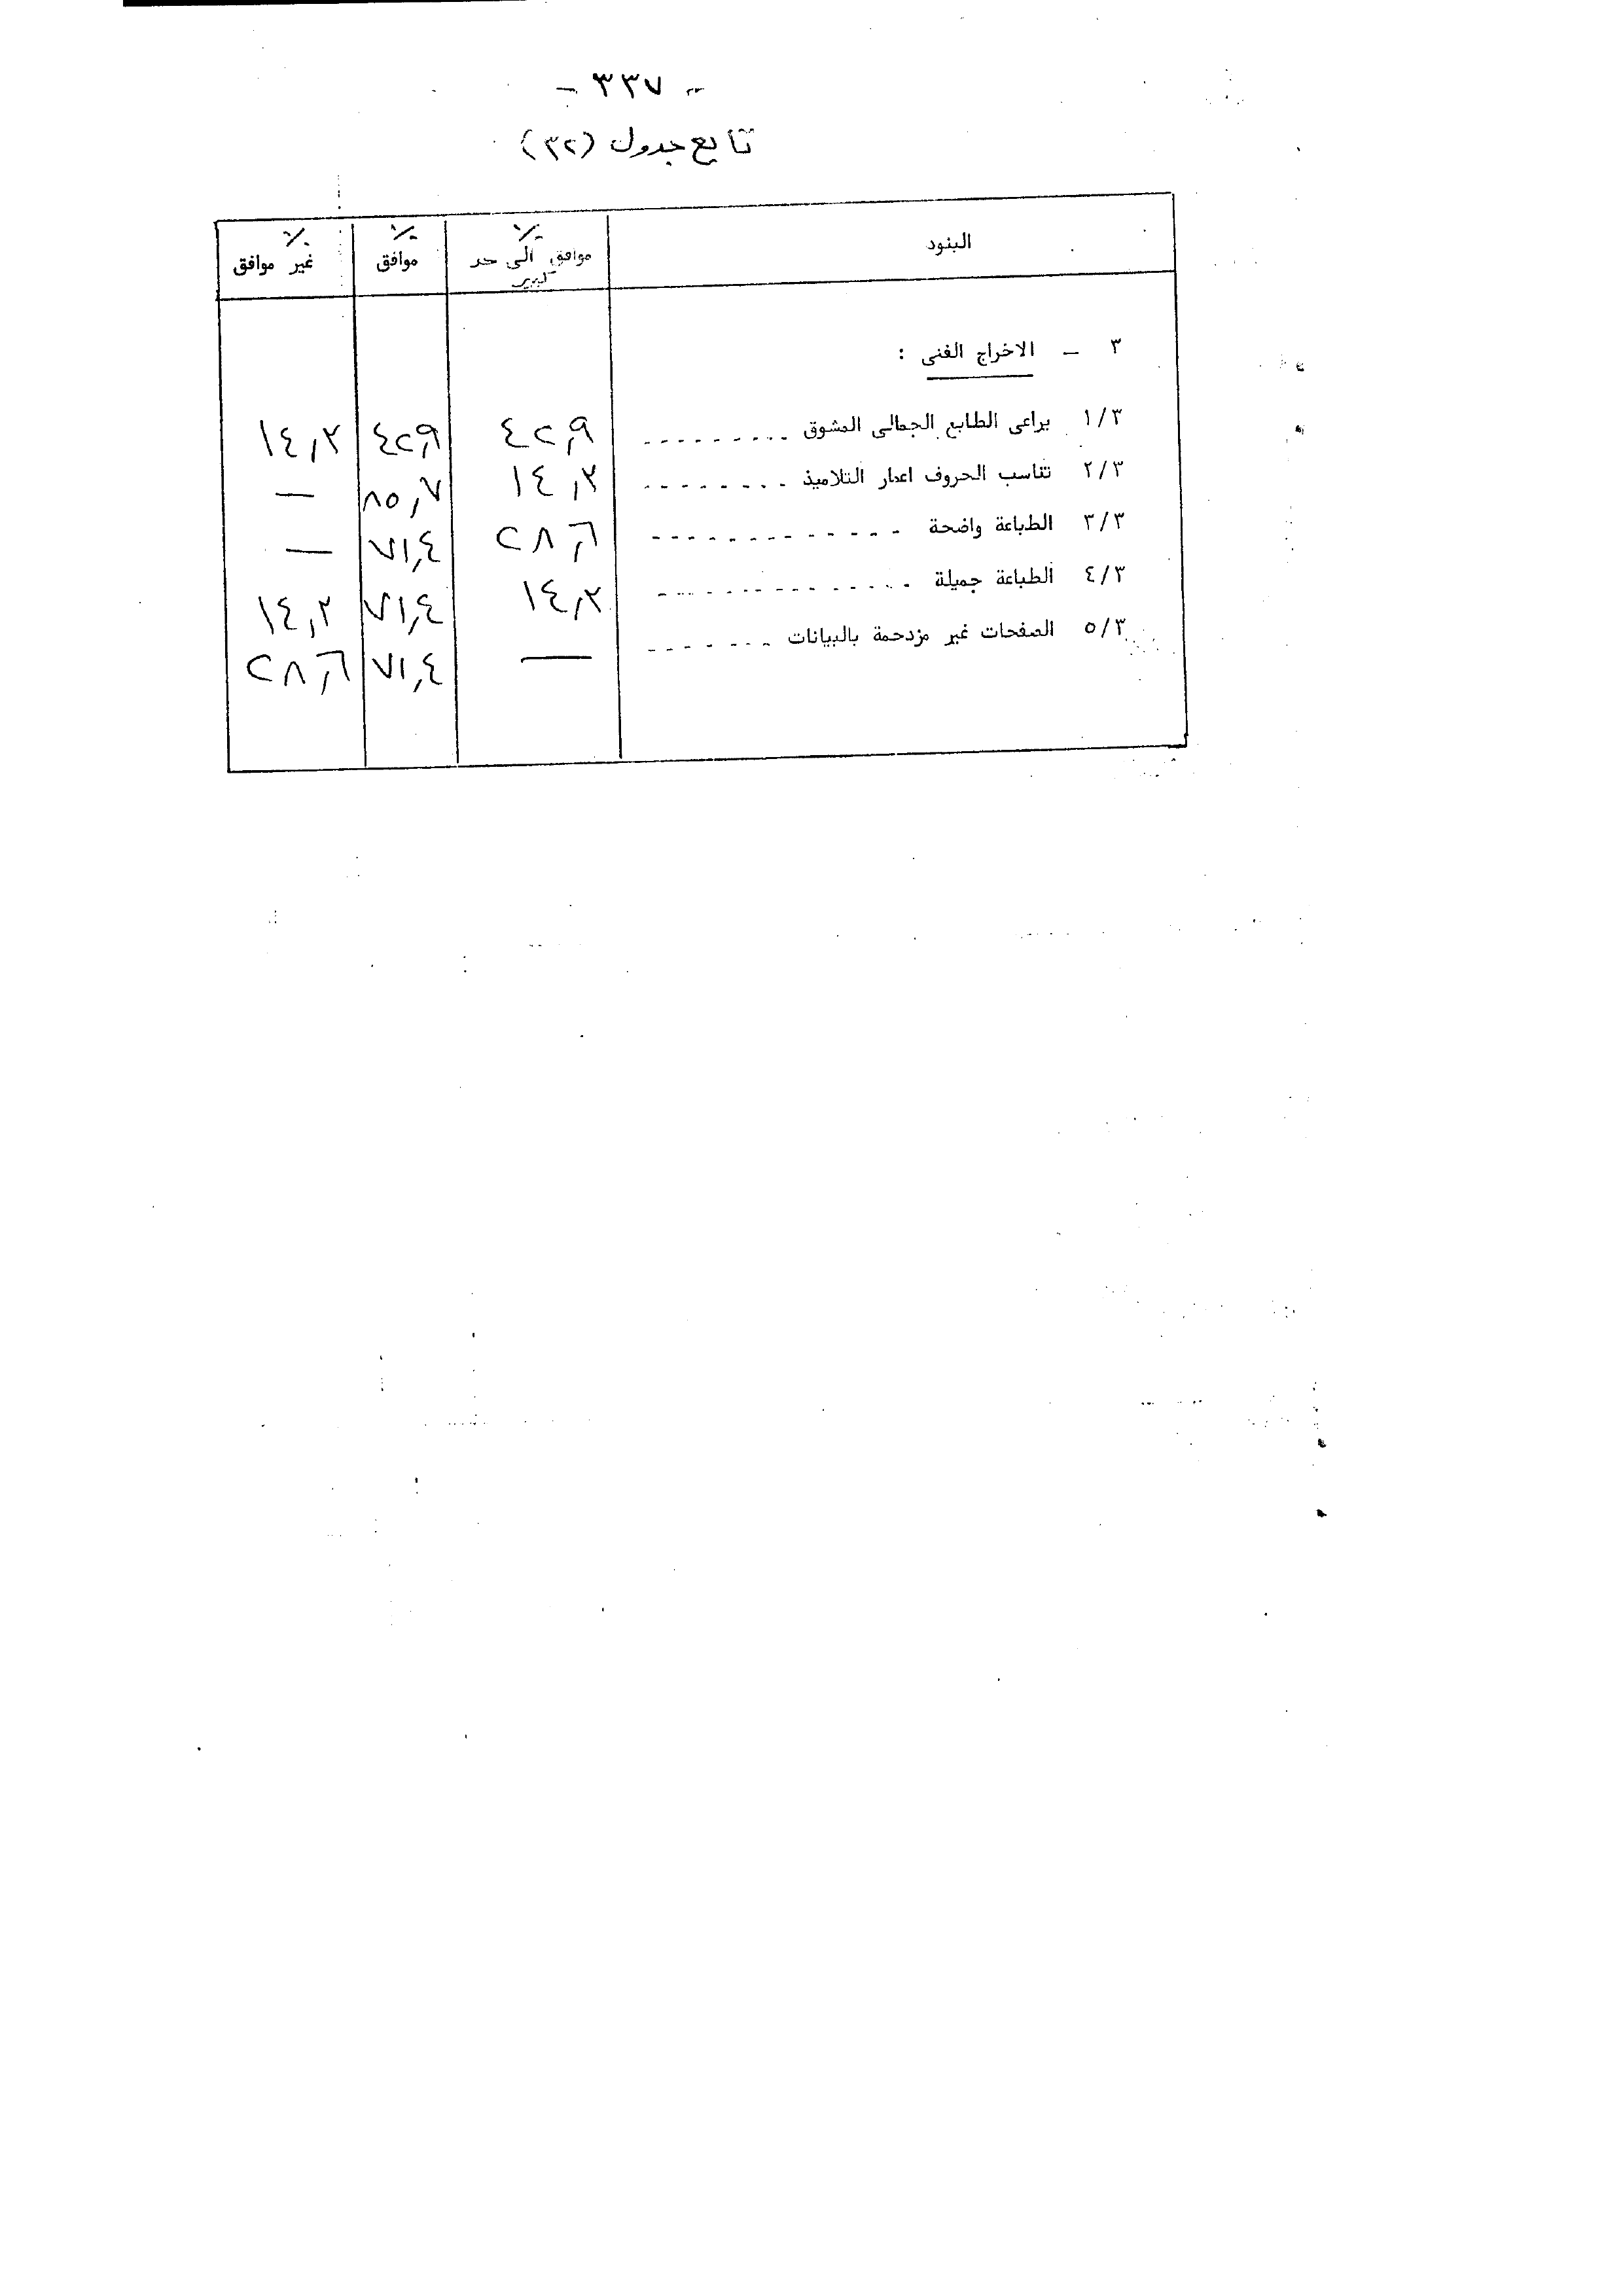 - ٣٣٧ -
تابع جدول (٣٢)
البنود ٪ موافق الى حد كبير ٪ موافق ٪ غير موافق
٣ – الاخراج الفنى :
١/٣ يراعى الطابع الجمالى المشوق ٤٢,٩ ٤٢,٩ ١٤,٢
٢/٣ تناسب الحروف اعمار التلاميذ ١٤,٢ ٨٥,٧ —
٣/٣ الطباعة واضحة ٢٨,٦ ٧١,٤ —
٤/٣ الطباعة جميلة ١٤,٢ ٧١,٤ ١٤,٢
٥/٣ الصفحات غير مزدحمة بالبيانات — ٧١,٤ ٢٨,٦